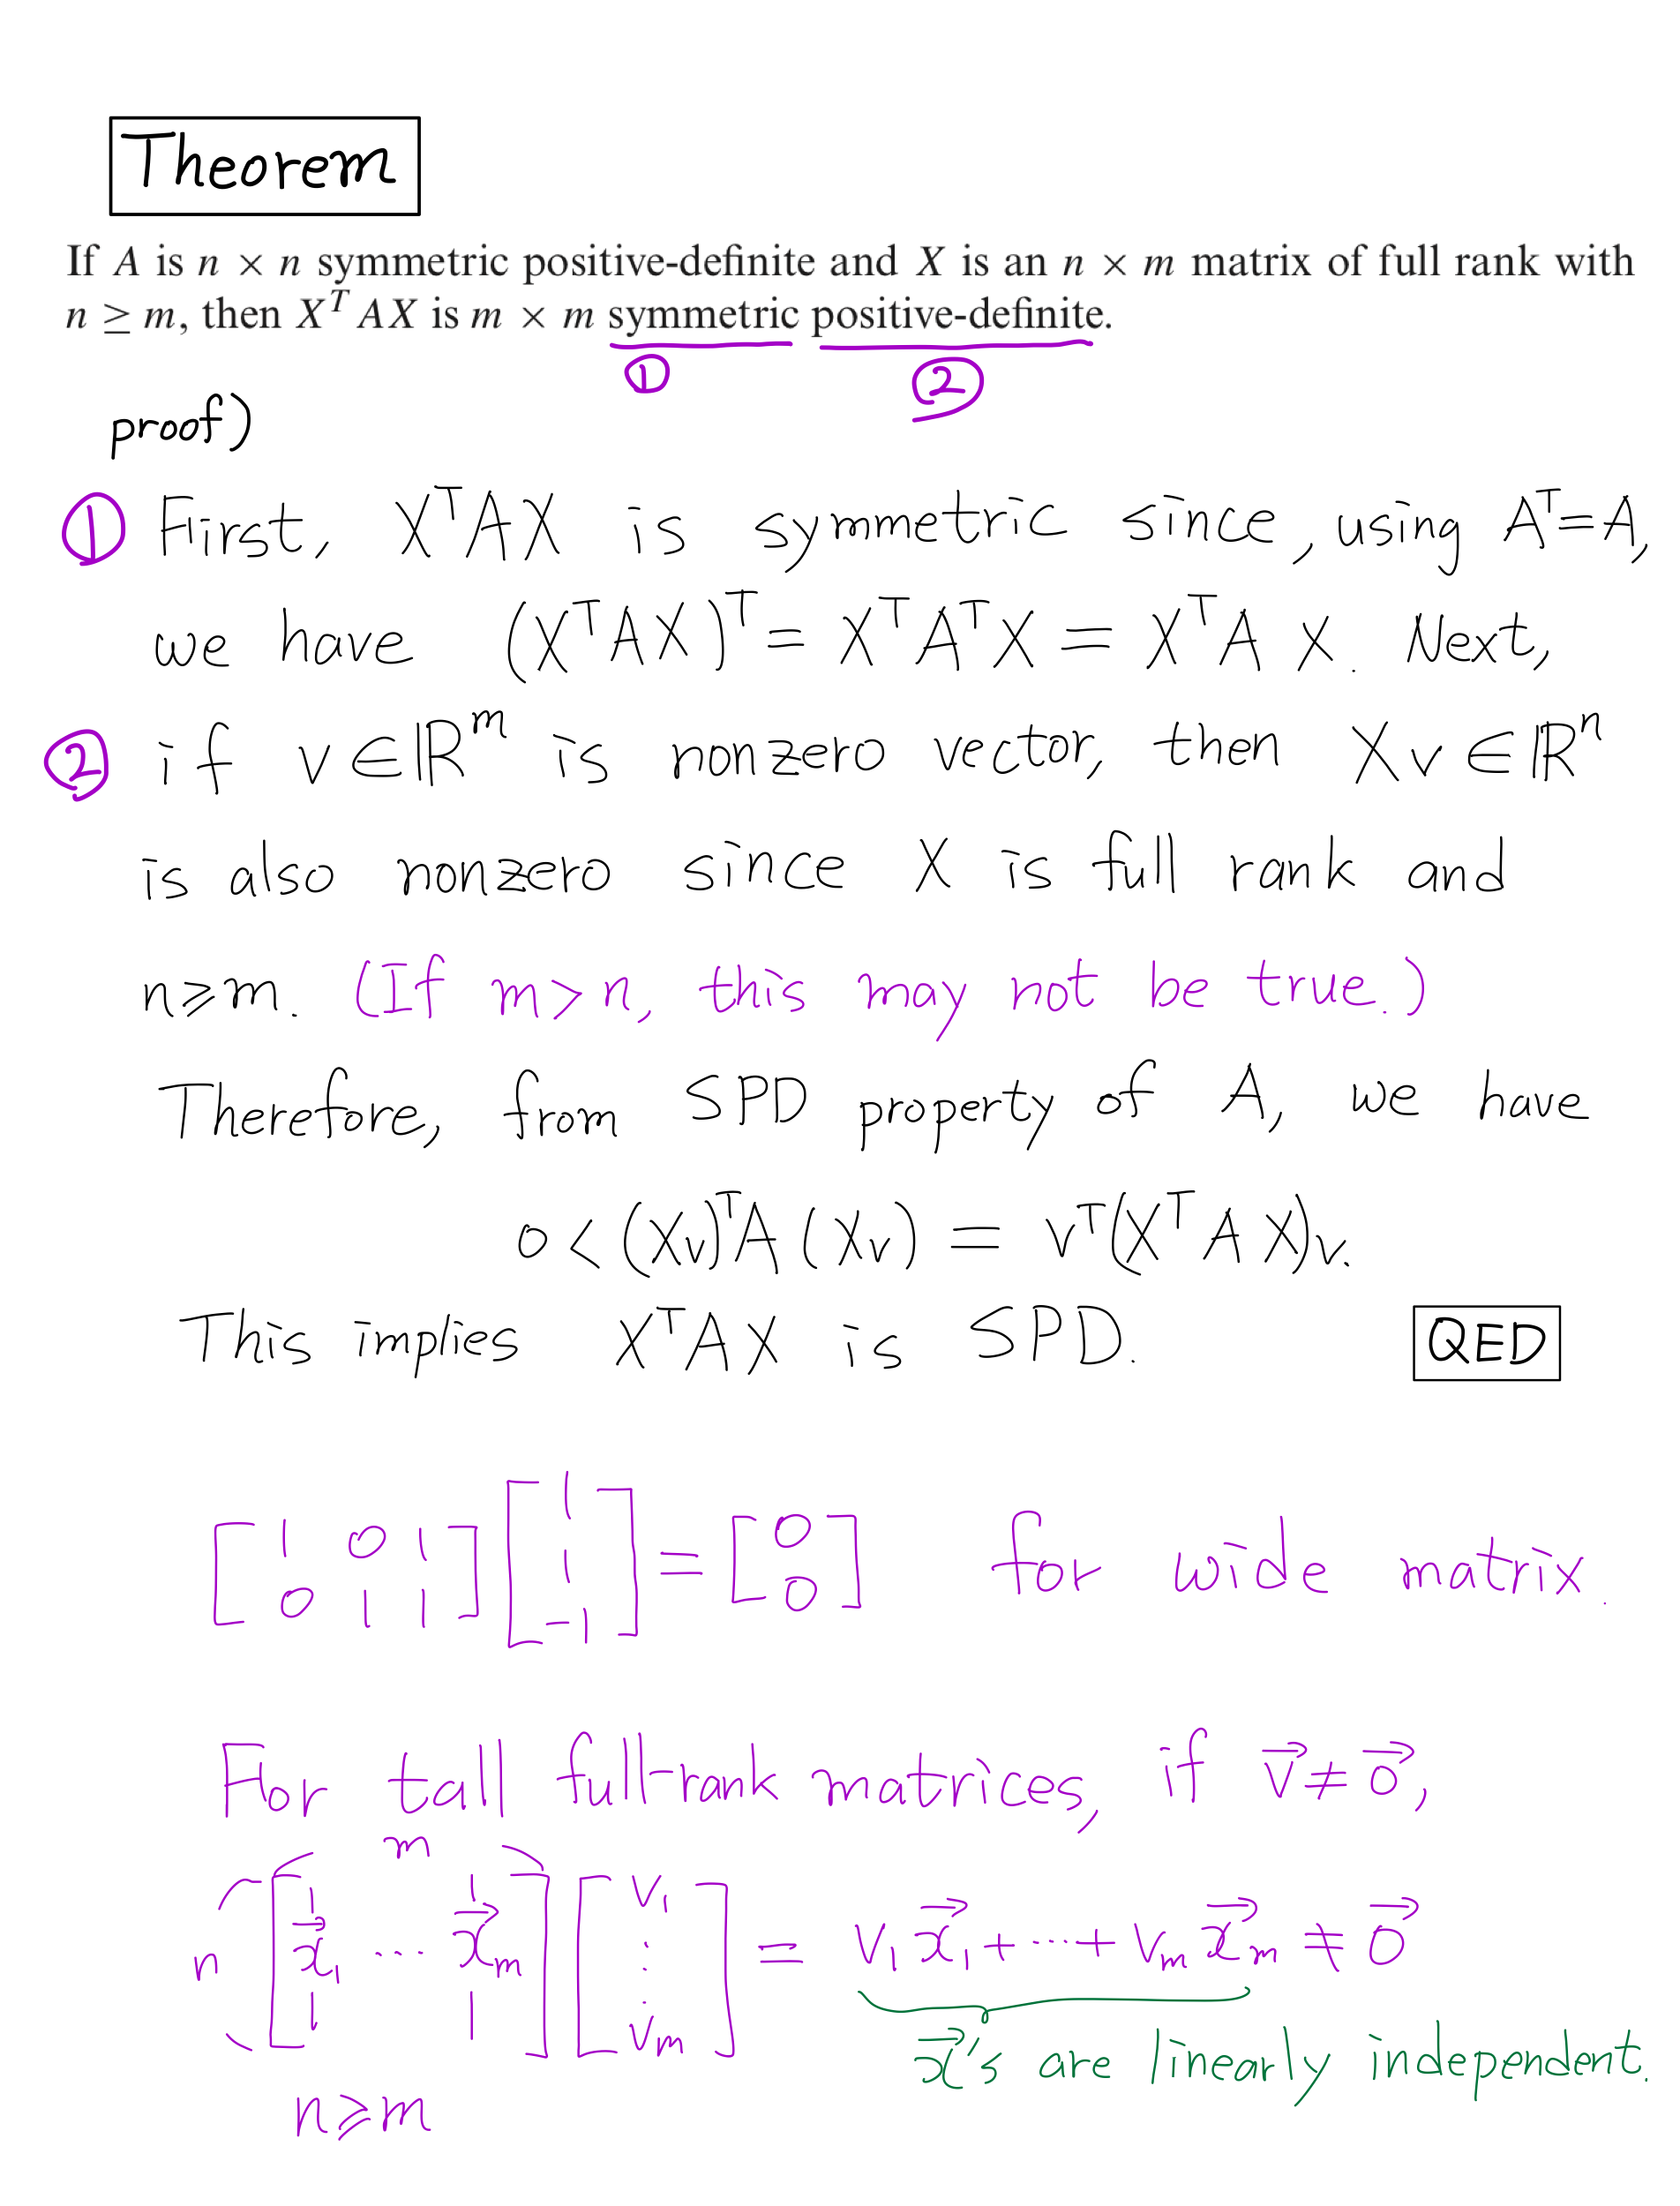 Theorem
If A is n × n symmetric positive-definite and X is an n × m matrix of full rank with
n ≥ m, then X^T AX is m × m symmetric positive-definite.
① ②
proof)
① First, X^T AX is symmetric since, using A^T=A,
we have (X^T AX)^T = X^T A^T X = X^T A X. Next,
② if v∈ℝ^m is nonzero vector, then Xv∈ℝ^n
is also nonzero since X is full rank and
n≥m. (If m>n, this may not be true.)
Therefore, from SPD property of A, we have
0 < (Xv)^T A (Xv) = v^T(X^T A X)v.
This implies X^T AX is SPD. QED
[1 0 1; 0 1 1][1; 1; -1] = [0; 0] for wide matrix.
For tall full-rank matrices, if v⃗≠0⃗,
m
n [x⃗₁ ⋯ x⃗ₘ][v₁; ⋮; vₘ] = v₁x⃗₁+⋯+vₘx⃗ₘ ≠ 0⃗
x⃗'s are linearly independent.
n≥m